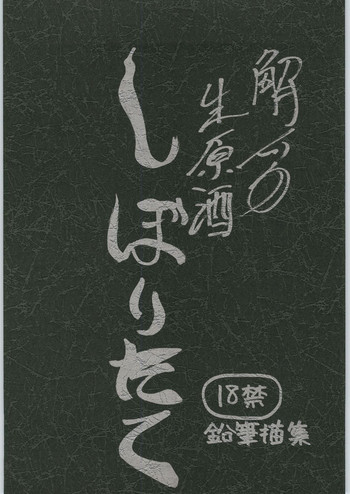 解一の
生原酒
しぼりたて
18禁
鉛筆描集